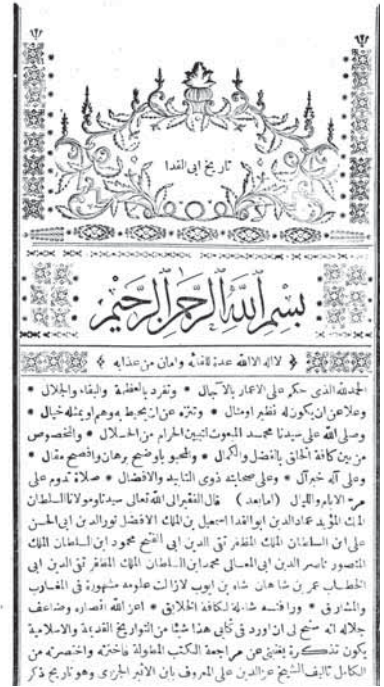 تاريخ ابى الفدا
بسم الله الرحمن الرحيم
لا اله الا الله عدة للقائه وامان من عذابه
الحمد لله الذى حكم على الاعمار بالآجال * وتفرد بالعظمة والبقاء والجلال *
وعلا عن ان يكون له نظير او مثال * وتنزه عن ان يحيط به وهم او يمثله خيال *
وصلى الله على سيدنا محمد المبعوث لتبيين الحرام من الحلال * والمخصوص
من بين كافة الخلق بالفضل والكمال * والمحبو باوضح برهان وافصح مقال *
وعلى آله خير آل * وعلى صحابته ذوى التاييد والافضال * صلاة تدوم على
مر الايام والليال (اما بعد) قال الفقير الى الله تعالى سيدنا ومولانا السلطان
الملك المؤيد عماد الدين ابو الفدا اسمعيل بن الملك الافضل نور الدين ابى الحسن
على ابن السلطان الملك المظفر تقى الدين ابى الفتح محمود ابن السلطان الملك
المنصور ناصر الدين ابى المعالى محمد ابن السلطان الملك المظفر تقى الدين ابى
الخطاب عمر بن شاهان شاه بن ايوب لازالت علومه مشهورة فى المغارب
والمشارق * ورافته شاملة لكافة الخلايق * اعز الله انصاره وضاعف
جلاله انه سنح لى ان اورد فى كتابى هذا شيئا من التواريخ القديمة والاسلامية
يكون تذكرة يغنينى عن مراجعة الكتب المطولة فاخترته واختصرته من
الكامل تاليف الشيخ عز الدين على المعروف بابن الاثير الجزرى وهو تاريخ ذكر